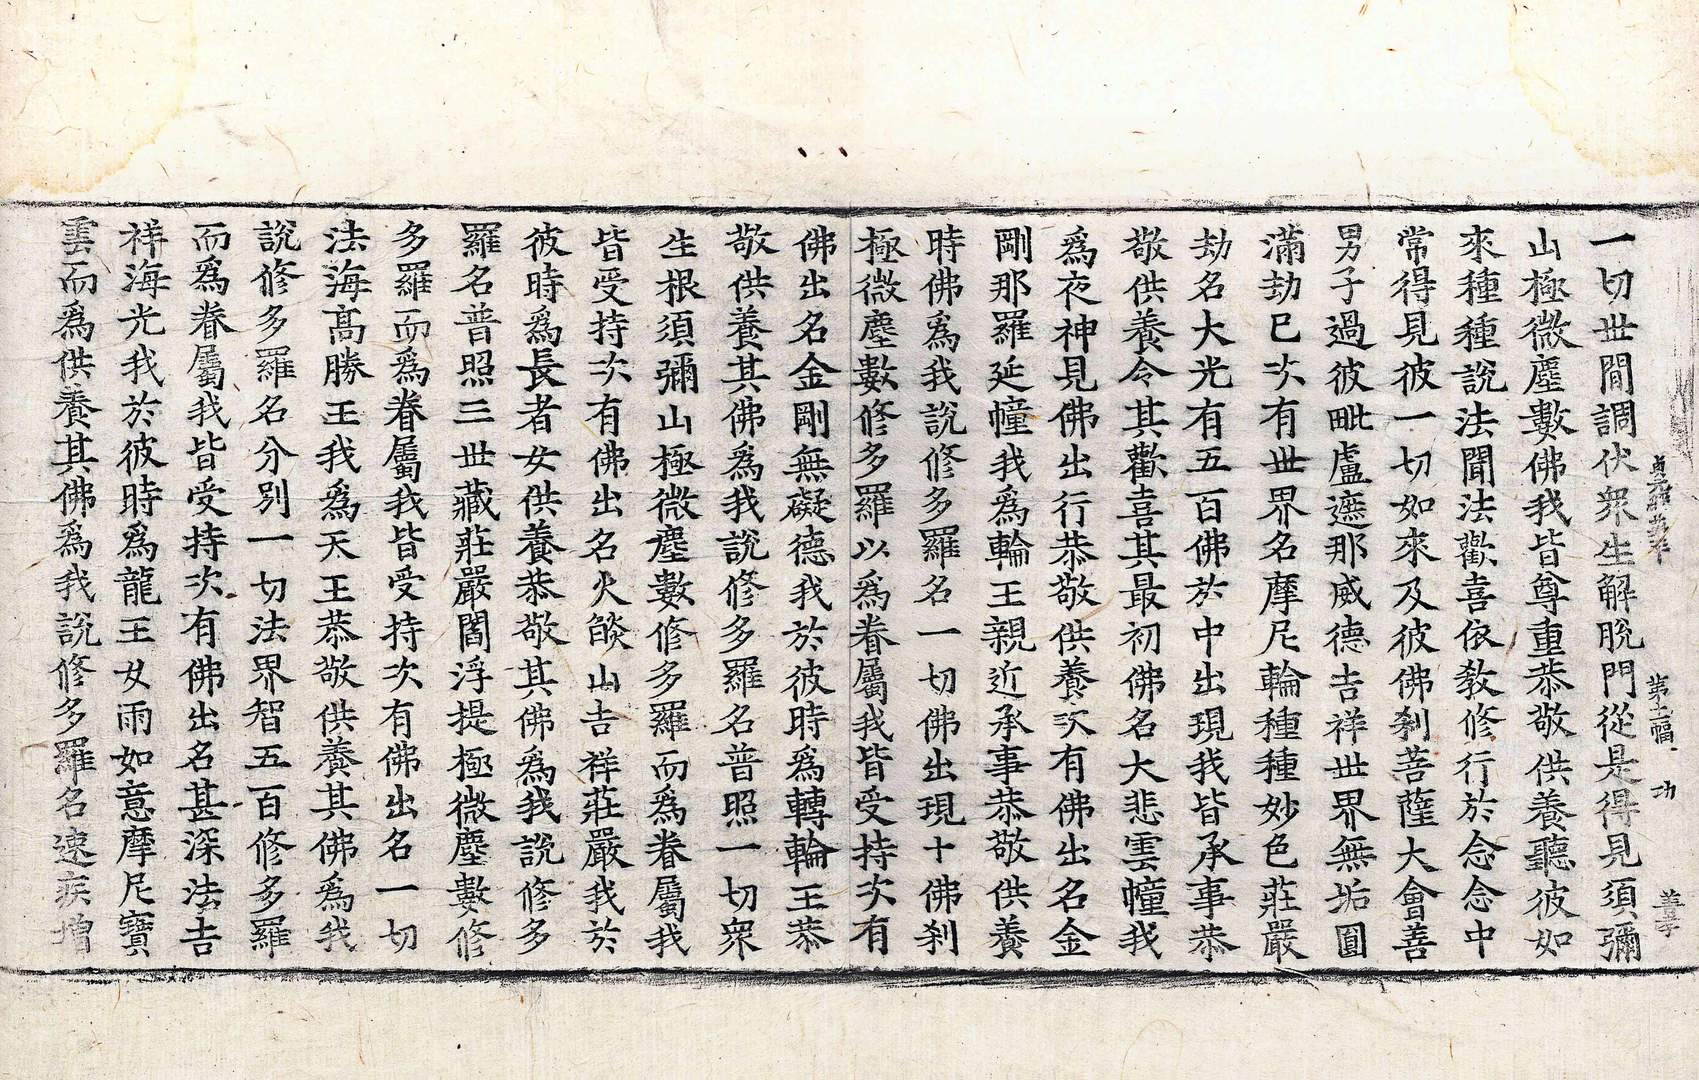 一切世間調伏衆生解脫門從是得見須彌
山極微塵數佛我皆尊重恭敬供養聽彼如
來種種說法聞法歡喜依教修行於念念中
常得見彼一切如來及彼佛刹菩薩大會善
男子過彼毗盧遮那威德吉祥世界無垢圓
滿劫已次有世界名摩尼輪種種妙色莊嚴
劫名大光有五百佛於中出現我皆承事恭
敬供養令其歡喜其最初佛名大悲雲幢我
爲夜神見佛出行恭敬供養次有佛出名金
剛那羅延幢我爲輪王親近承事恭敬供養
時佛爲我說修多羅名一切佛出現十佛刹
極微塵數修多羅以爲眷屬我皆受持次有
佛出名金剛無礙德我於彼時爲轉輪王恭
敬供養其佛爲我說修多羅名普照一切衆
生根須彌山極微塵數修多羅而爲眷屬我
皆受持次有佛出名火燄山吉祥莊嚴我於
彼時爲長者女供養恭敬其佛爲我說修多
羅名普照三世藏莊嚴閻浮提極微塵數修
多羅而爲眷屬我皆受持次有佛出名一切
法海高勝王我爲天王恭敬供養其佛爲我
說修多羅名分別一切法界智五百修多羅
而爲眷屬我皆受持次有佛出名甚深法吉
祥海光我於彼時爲龍王女雨如意摩尼寶
雲而爲供養其佛爲我說修多羅名速疾增